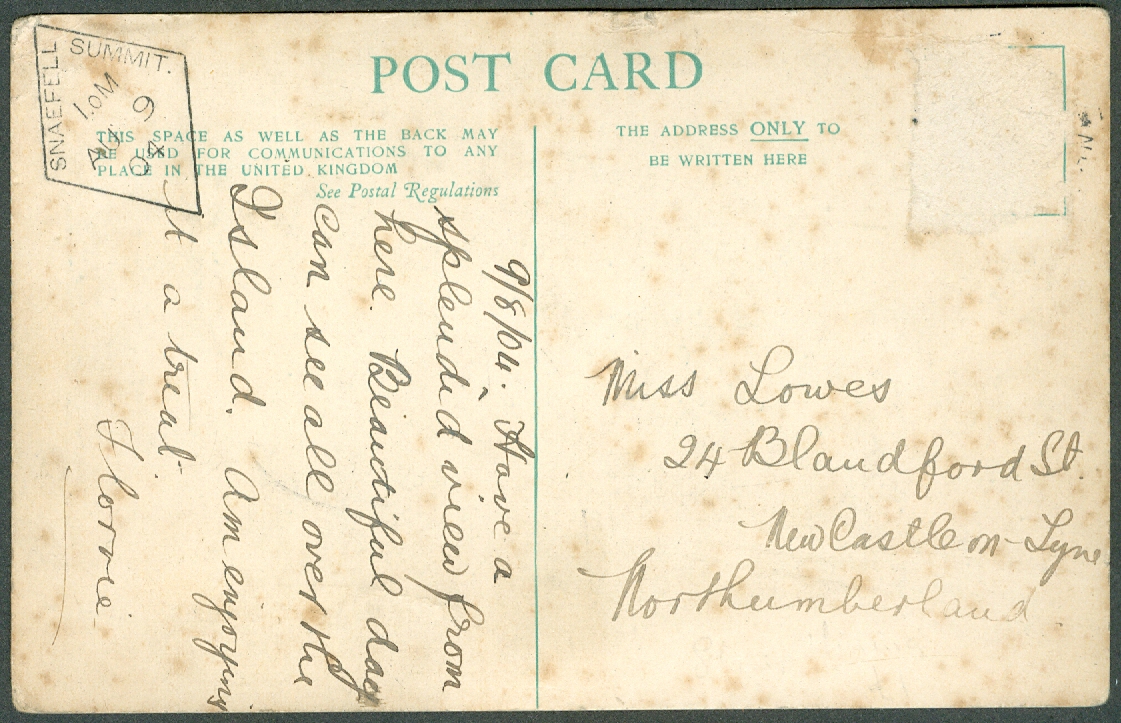 SNAEFELL SUMMIT.
I.OM
AU 9
04
POST CARD
THIS SPACE AS WELL AS THE BACK MAY
BE USED FOR COMMUNICATIONS TO ANY
PLACE IN THE UNITED KINGDOM
See Postal Regulations
THE ADDRESS ONLY TO
BE WRITTEN HERE
9/8/04. Have a
splendid view from
here. Beautiful day
can see all over the
Island. Am enjoying
it a treat.
Florrie.
Miss Lowes
24 Blandford St.
NewCastle on-Tyne
Northumberland